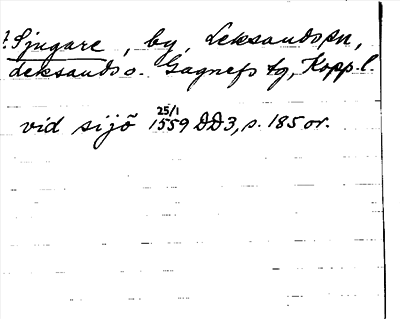 ? Sjugare, by, Leksands sn,
Leksands o. Gagnefs tg, Kopp. l.
vid sijö 25/1 1559 DD3, s. 185 or.